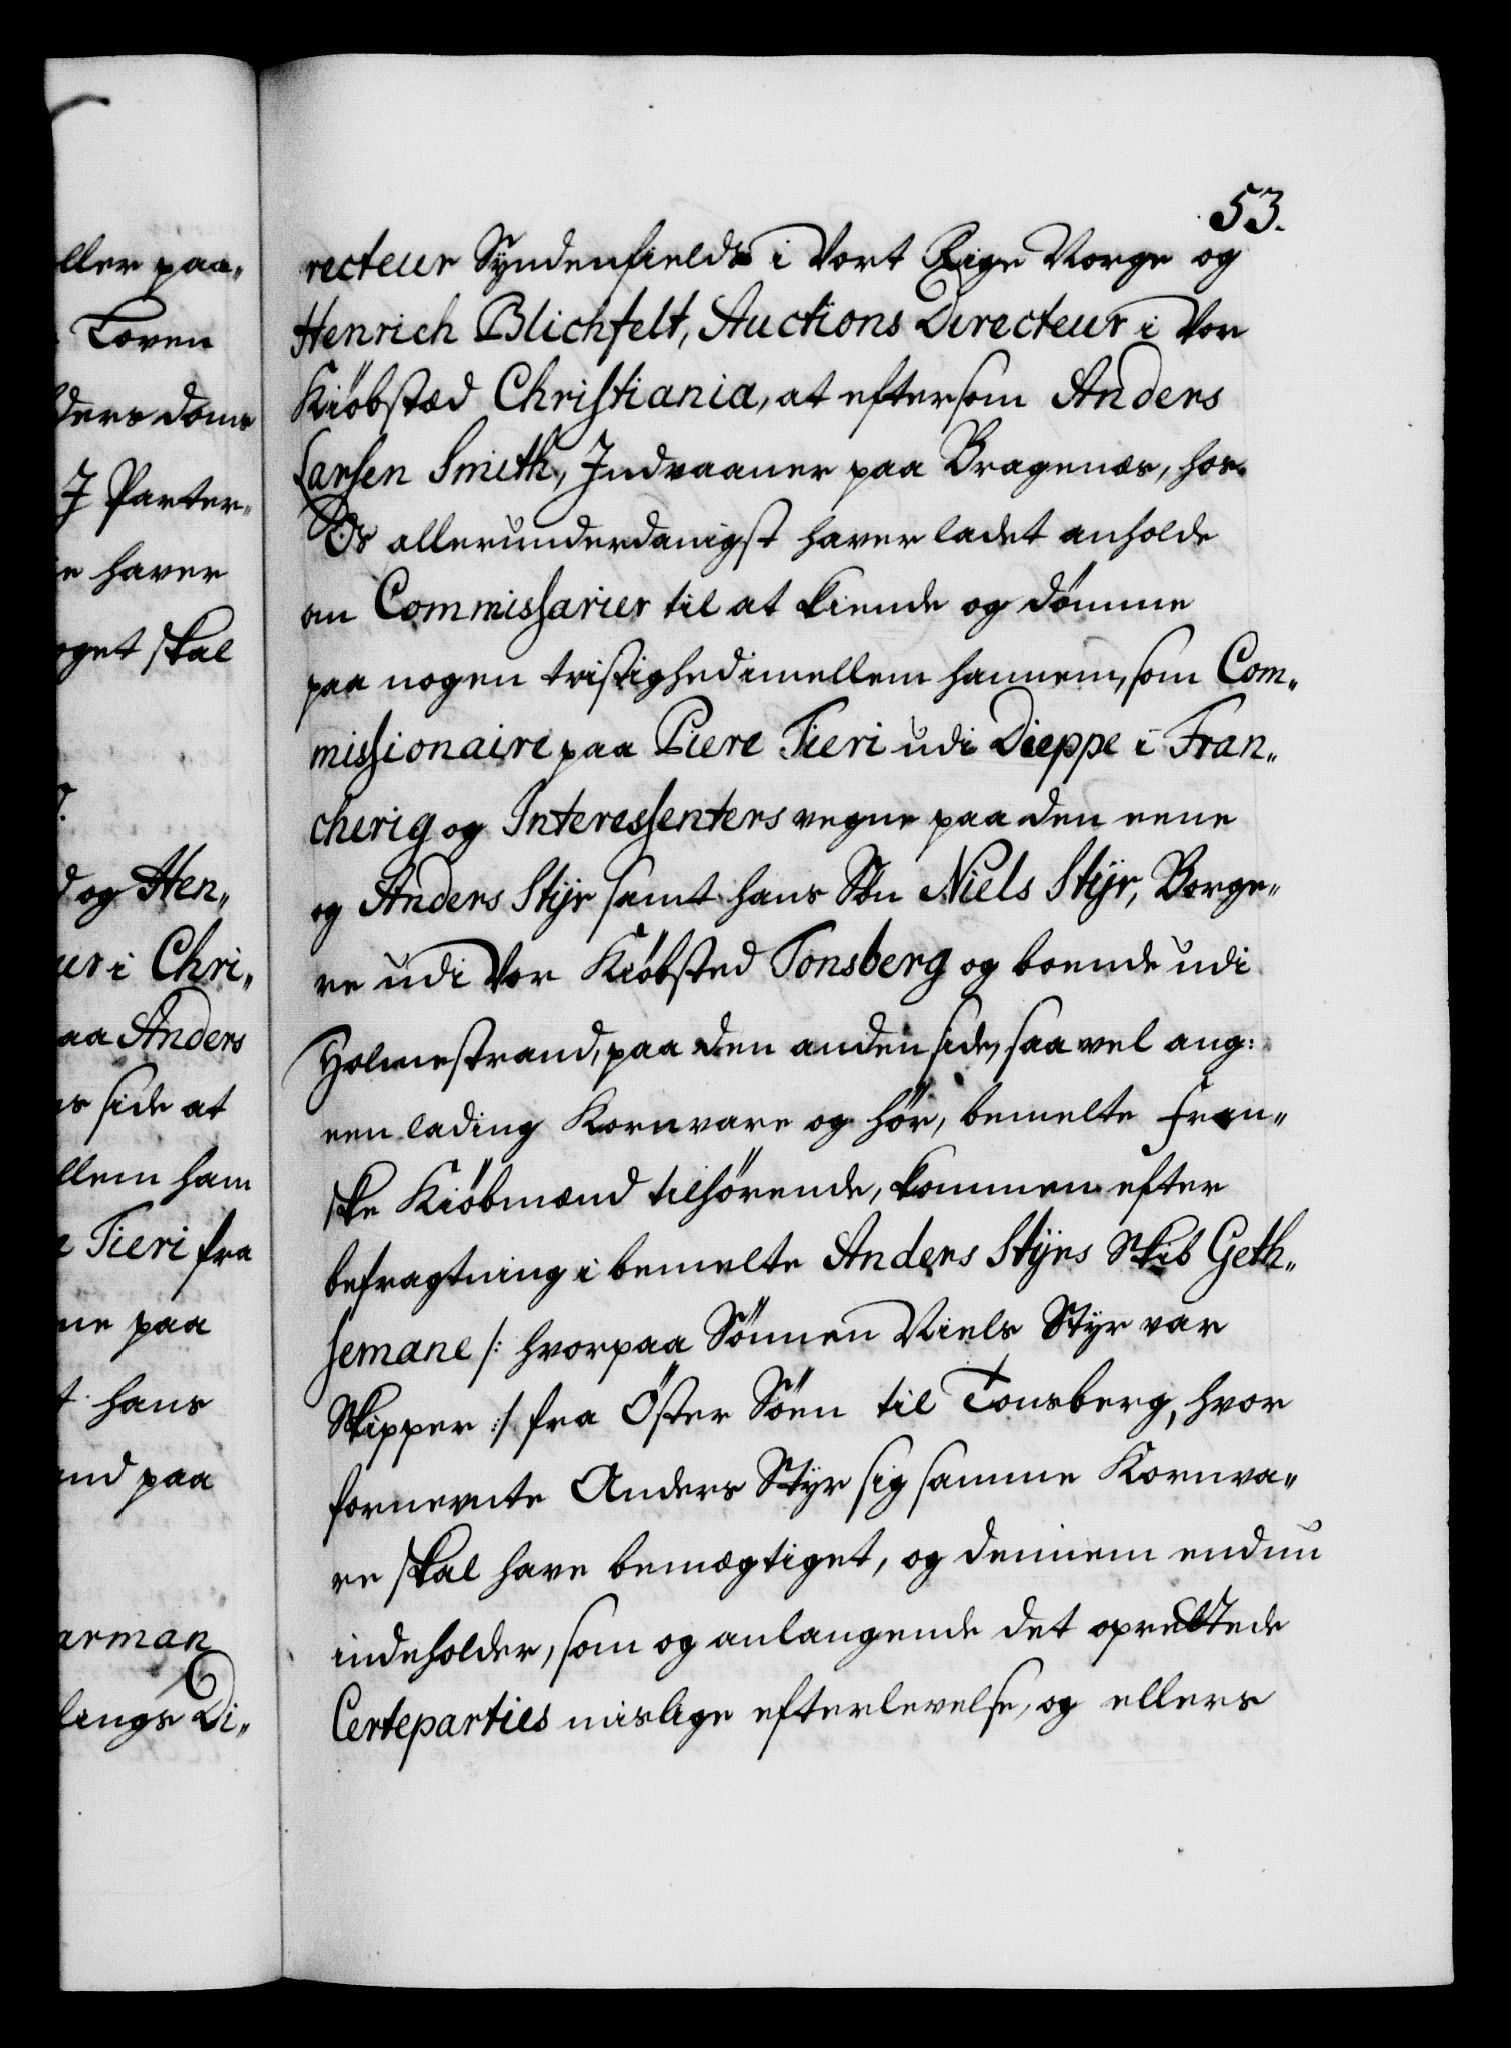 53.
ller paa„
Loven
ders doms
J Parter„
e haver
oget skal
d og Hen„
ur i Chri„
aa Anders
s side at
llem ham
e Tieri fra
ne paa
t hans
and paa
arman
lings Di„
recteur Syndenfields i Vort Rige Norge og
Henrich Blichfelt, Auctions Directeur i Vor
Kiöbstæd Christiania, at eftersom Anders
Larsen Smith, Indvaaner paa Bragenæs, hos
Os allerunderdanigst haver ladet anholde
om Commissarier til at kiende og dömme
paa nogen tvistighed imellem hannem, som Com„
missionaire paa Piere Tieri udi Dieppe i Fran„
cherig og Interessenters vegne paa den eene
og Anders Stÿr samt hans Sön Niels Stÿr, Borge„
re udi Vor Kiöbsted Tonsberg og boende udi
Holmestrand, paa den anden side, saa vel ang:
een lading Kornvare og hör, bemelte Fran„
ske Kiöbmænd tilhörende, kommen efter
befragtning i bemelte Anders Stÿrs Skib Geth„
semane /: hvorpaa Sönnen Niels Styr var
Skipper :/ fra Öster Söen til Tonsberg, hvor
fornevnte Anders Styr sig samme Kornva„
re skal have bemægtiget, og dennem endnu
indeholder, som og anlangende det oprettede
Certeparties mislige efterlevelse, og ellers